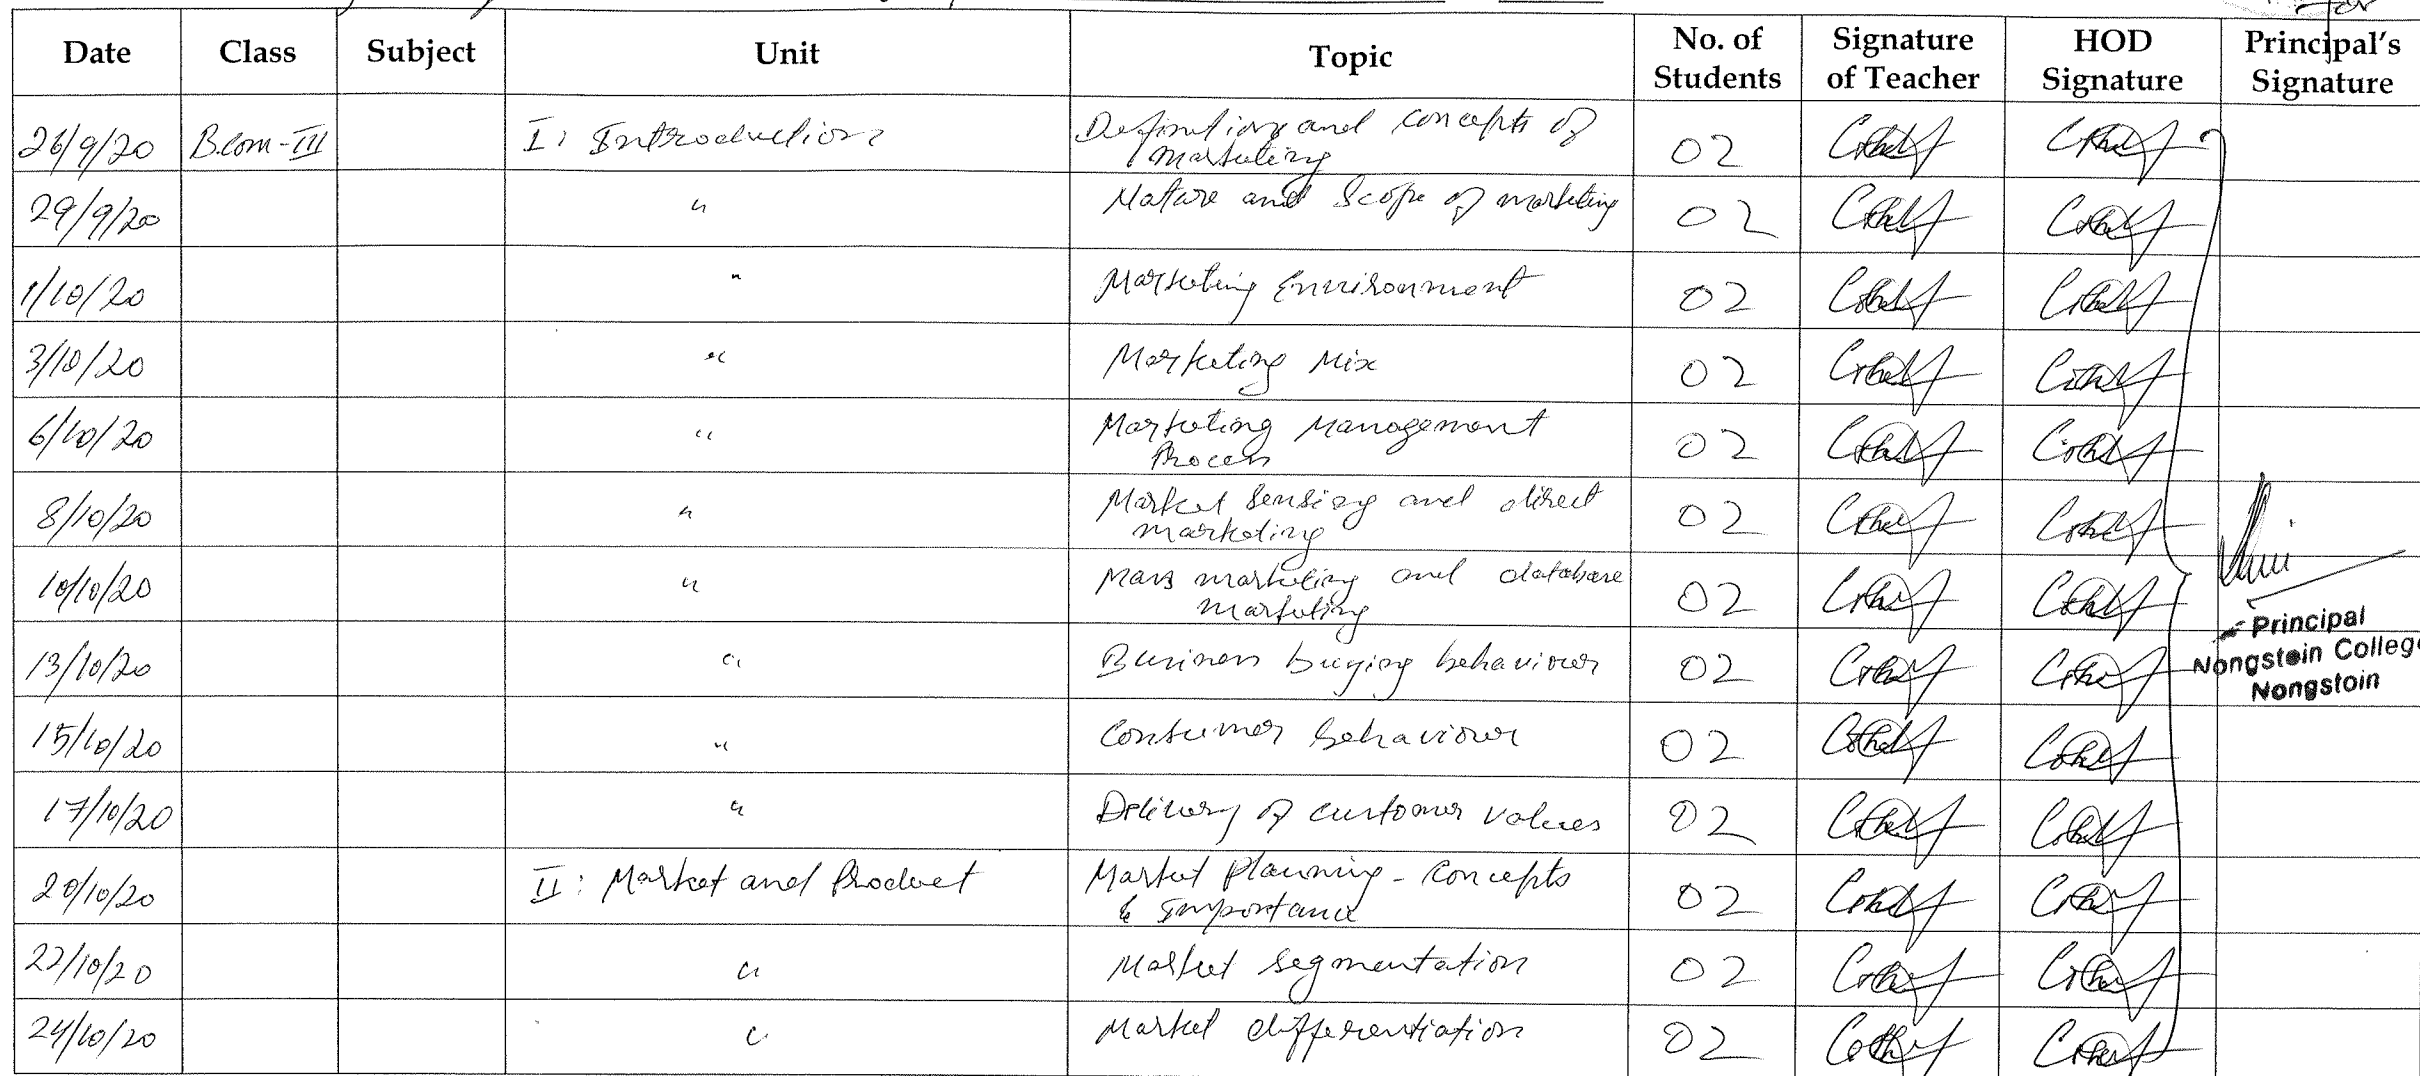 Date Class Subject Unit Topic No. of Students Signature of Teacher HOD Signature Principal's Signature
26/9/20 B.com-III I: Introduction Definition and concepts of marketing 02
29/9/20 " Nature and Scope of marketing 02
1/10/20 " Marketing Environment 02
3/10/20 " Marketing Mix 02
6/10/20 " Marketing Management Process 02
8/10/20 " Market Sensing and direct marketing 02
10/10/20 " Mass marketing and database marketing 02
13/10/20 " Business buying behaviour 02
Principal
Nongstoin College
Nongstoin
15/10/20 " Consumer behaviour 02
17/10/20 " Delivery of customer values 02
20/10/20 II: Market and Product Market Planning - Concepts & Importance 02
22/10/20 " Market segmentation 02
24/10/20 " Market differentiation 02